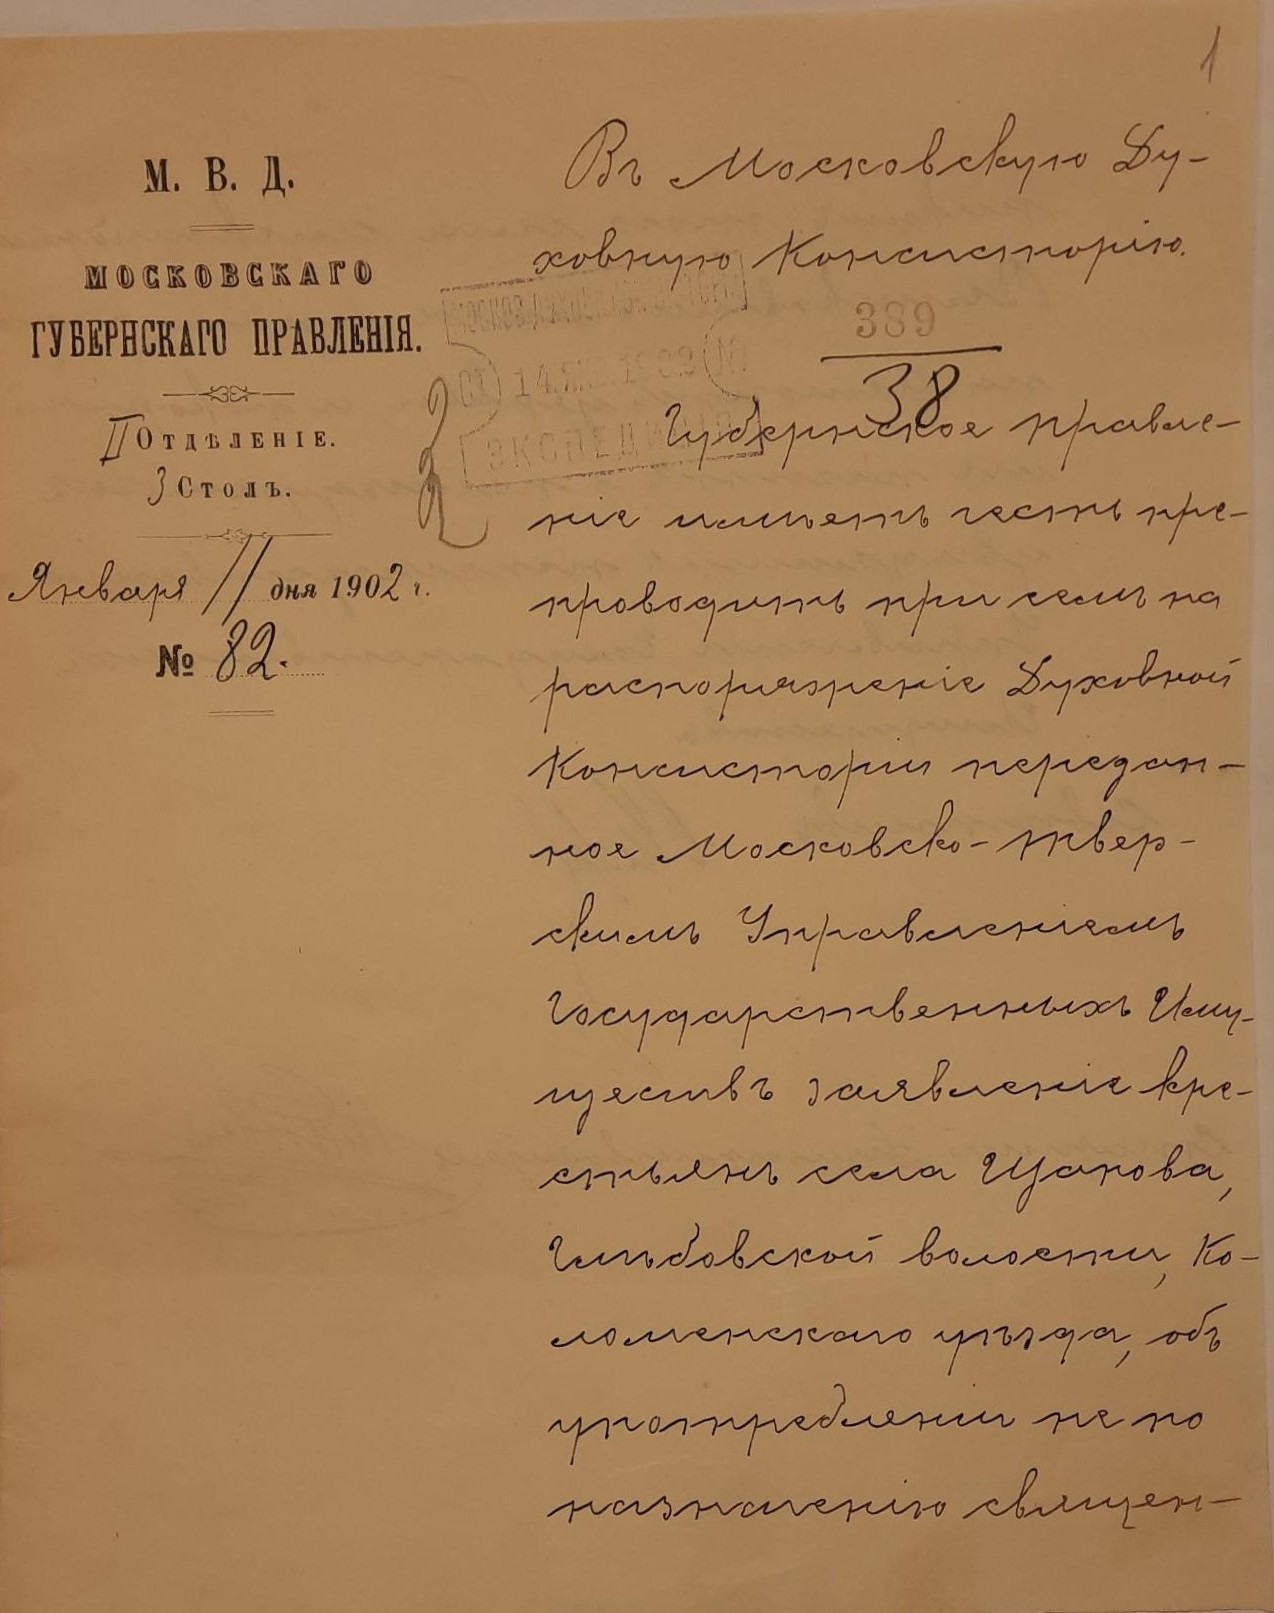 1
М. В. Д.
МОСКОВСКАГО
ГУБЕРНСКАГО ПРАВЛЕНІЯ.
II ОТДѢЛЕНІЕ.
3 СТОЛЪ.
Января 11 дня 1902 г.
№ 82.
Въ Московскую Ду-
ховную Консисторію.
14 ЯНВ. 1902
ЭКСПЕДИЦІЯ
389
38
Губернское правле-
ніе имѣетъ честь пре-
проводить при семъ на
распоряженіе Духовной
Консисторіи передан-
ное Московско-твер-
скимъ Управленіемъ
Государственныхъ Иму-
ществъ заявленіе кре-
стьянъ села Щапова,
Глѣбовской волости, Ко-
ломенскаго уѣзда, объ
употребленіи не по
назначенію священ-